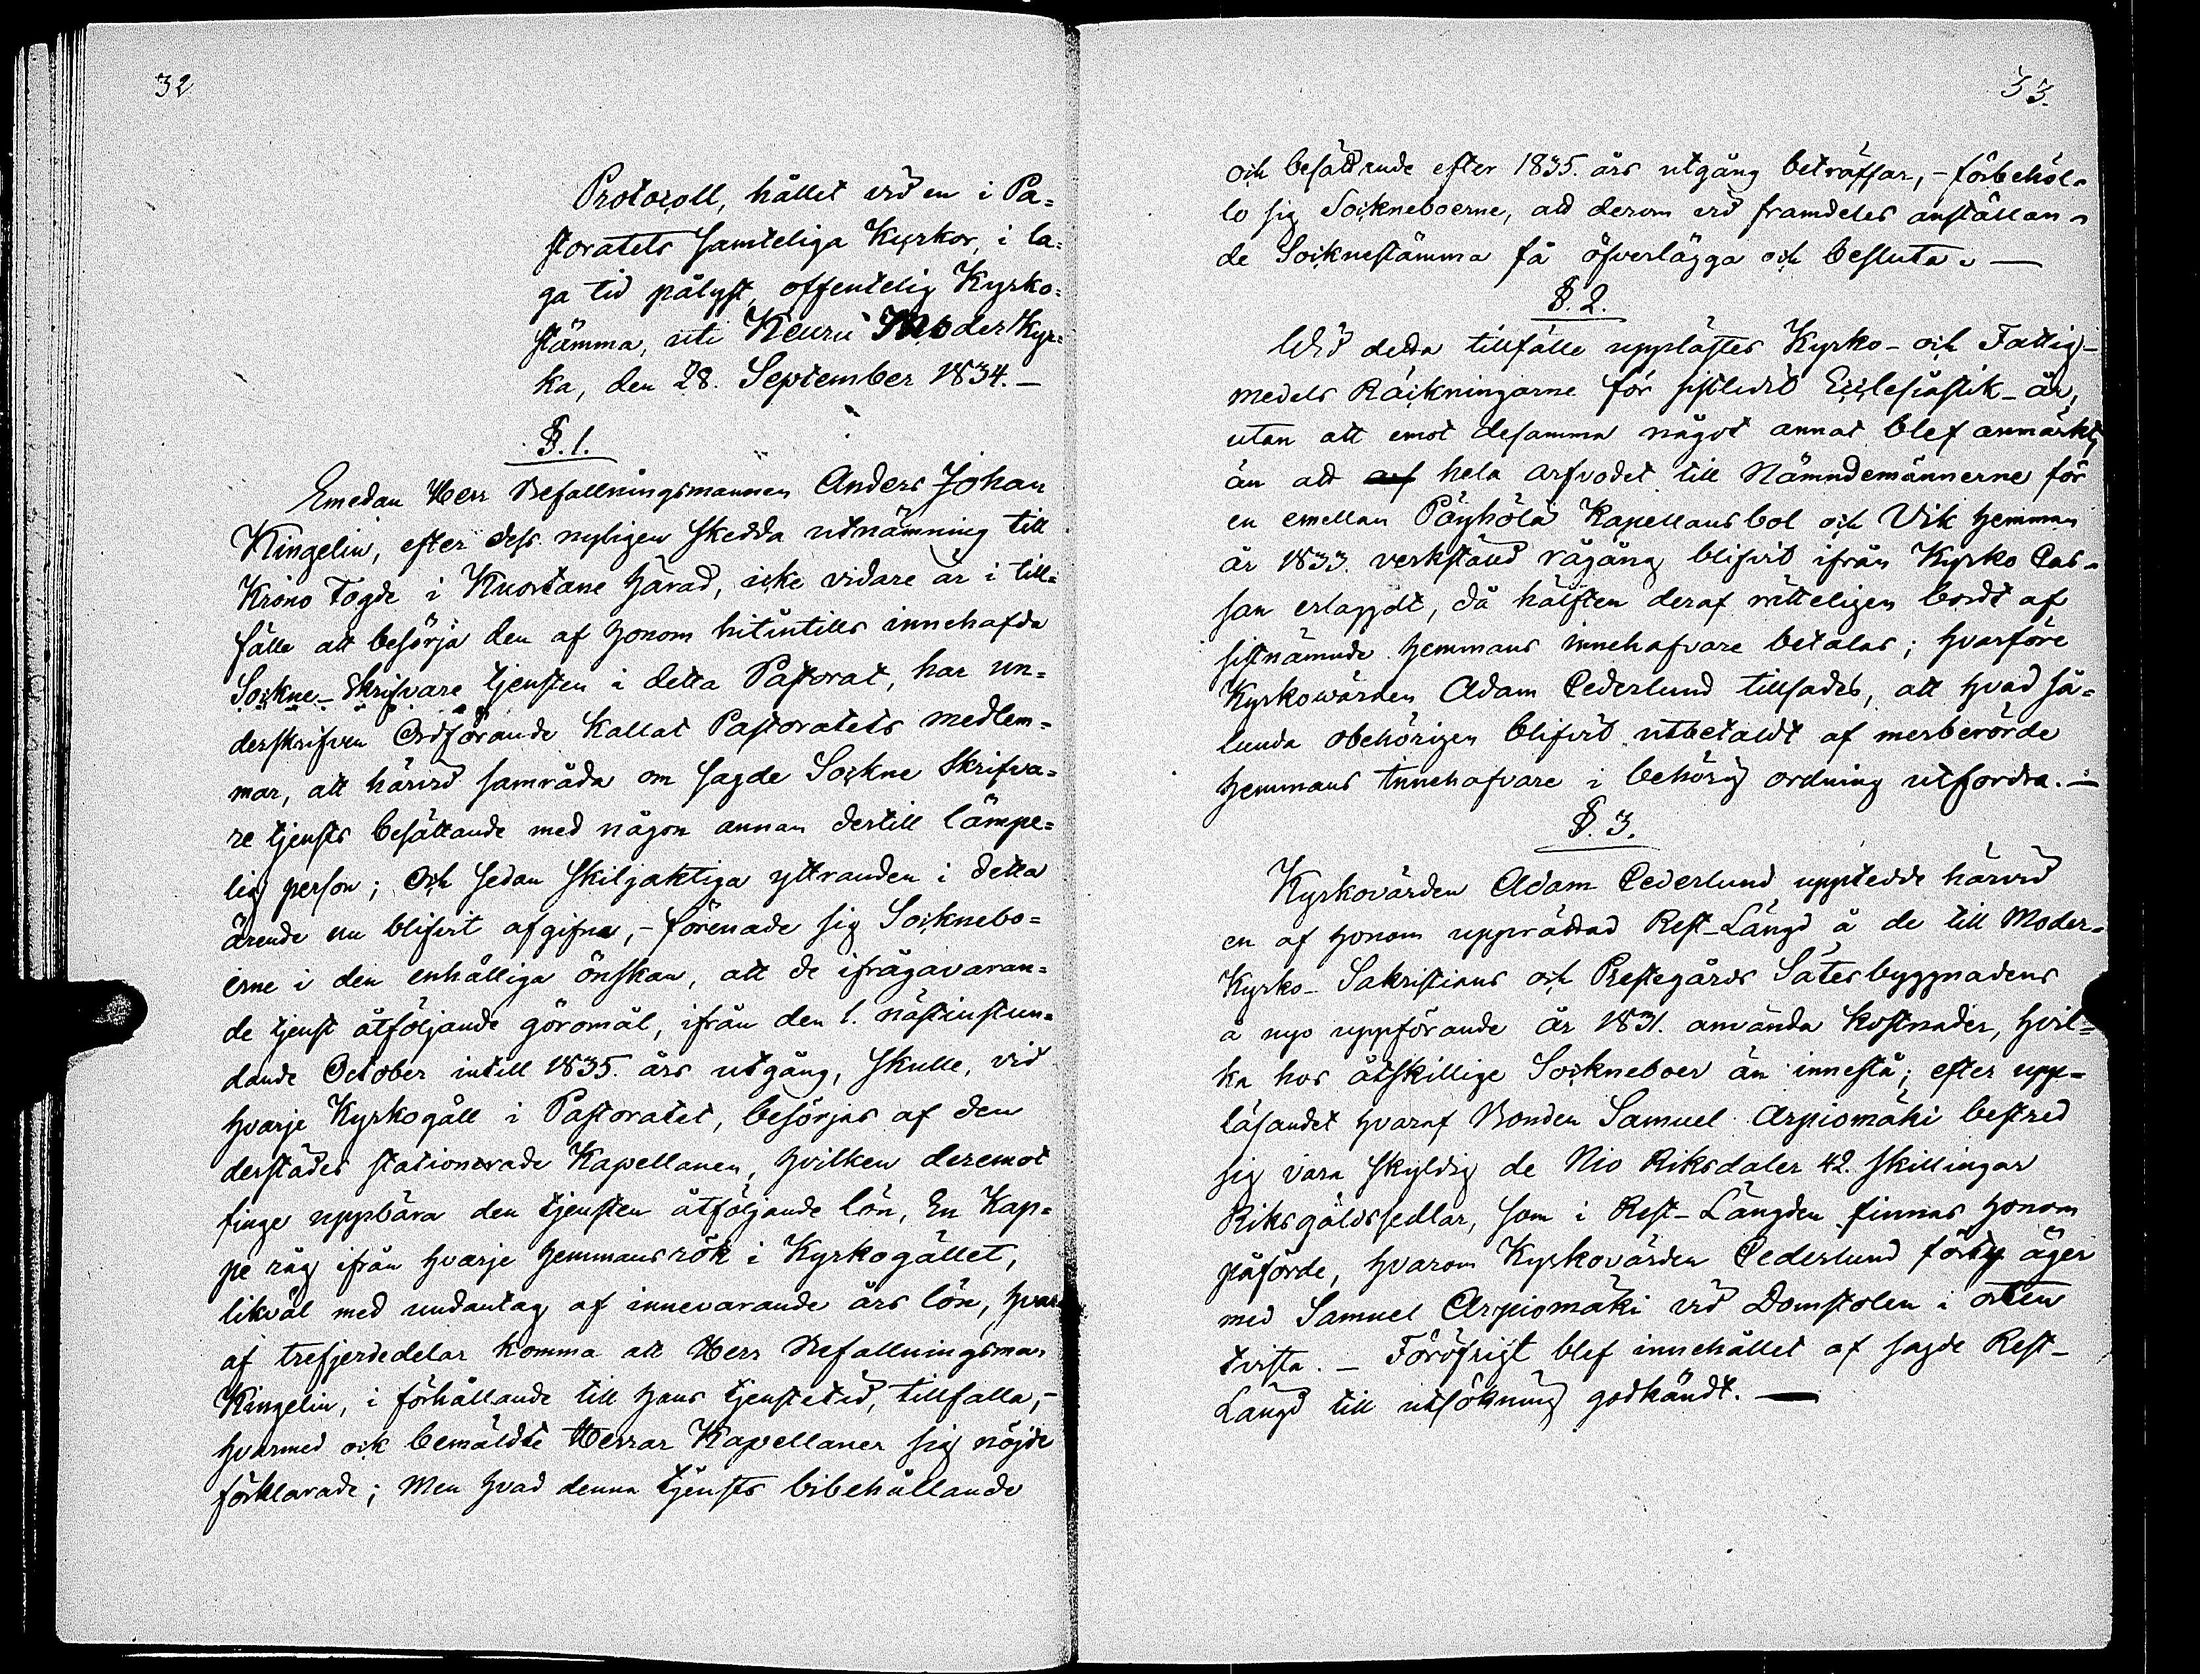 32
Protocoll, hållet vid en i Pa=
storatets samteliga Kyrkor, i la=
ga tid pålyst, offentelig Kyrko=
stämma, uti Keuru Moder Kyr=
ka, den 28. September 1834. —
§. 1.
Emedan Herr Befallningsmannen Anders Johan
Kingelin, efter dess nyligen skedda utnämning till
Krono Fogde i Kuortane härad, icke vidare är i till=
fälle att besörja den af honom hitintills innehafda
Sockne-Skrifvare tjensten i detta Pastorat, har un=
derskrifven Ordförande kallat Pastoratets medlem=
mar, att härvid samråda om sagde Sockne Skrifva=
re tjensts besättande med någon annan dertill lämpe=
lig person; Och sedan skiljaktiga yttranden i detta
ärende nu blifvit afgifna, - förenade sig Socknebo=
erne i den enhälliga önskan, att de ifrågavaran=
de tjenst åtföljande göromål, ifrån den 1. nästinstun=
dande October intill 1835. års utgång, skulle, vid
hvarje Kyrkogäll i Pastoratet, besörjas af den
derstädes stationerade Kapellanen, hvilken deremot
finge uppbära den tjensten åtföljande lön, En Kap=
pe råg ifrån hvarje hemmansrök i Kyrkogället,
likväl med undantag af innevarande års lön, hvar
af trefjerdedelar komma att Herr Befallningsman
Kingelin, i förhållande till hans tjenstetid, tillfalla, -
hvarmed ock bemäldte Herrar Kapellaner sig nöjde
förklarade; Men hvad denna tjensts bibehållande
33.
och besättande efter 1835. års utgång beträffar, - förbehöl=
lo sig Sockneboerne, att derom vid framdeles anställan=
de Socknestämma få öfverlägga och besluta. —
§. 2.
Vid detta tillfälle upplästes Kyrko- och Fattig-
medels Räckningarne för sistledit Ecclesiastik-år,
utan att emot desamma något annat blef anmärkt,
än att af hela arfvodet till Nämndemännerne för
en emellan Pöyhölä Kapellansbol och Vik hemman
år 1833. verkstäld rågång blifvit ifrån Kyrko Cas=
san erlaggdt, då hälften deraf rätteligen bordt af
sistnämnde hemmans innehafvare betalas; hvarföre
Kyrkowärden Adam Cederlund tillsades, att hvad så=
lunda obehörigen blifvit utbetaldt af merberörde
hemmans Innehafvare i behörig ordning utfordra. —
§. 3.
Kyrkovärden Adam Cederlund upptedde härvid
en af honom upprättad Rest-Längd å de till Moder=
Kyrko-Sakristians och Prestegårds Sätesbyggnadens
å nyo uppförande År 1831. använda kostnader, hvil=
ka hos åtskillige Sockneboer än innestå; efter upp=
läsandet hvaraf Bonden Samuel Arpiomäki bestred
sig vara skyldig de Nio Riksdaler 42. skillingar
Riksgäldssedlar, som i Rest-Längden finnas honom
påförde, hvarom Kyrkovärden Cederlund förty äger
med Samuel Arpiomäki vid Domstolen i orten
tvista. — Föröfrigt blef innehållet af sagde Rest-
Längd till utsökning godkändt. —